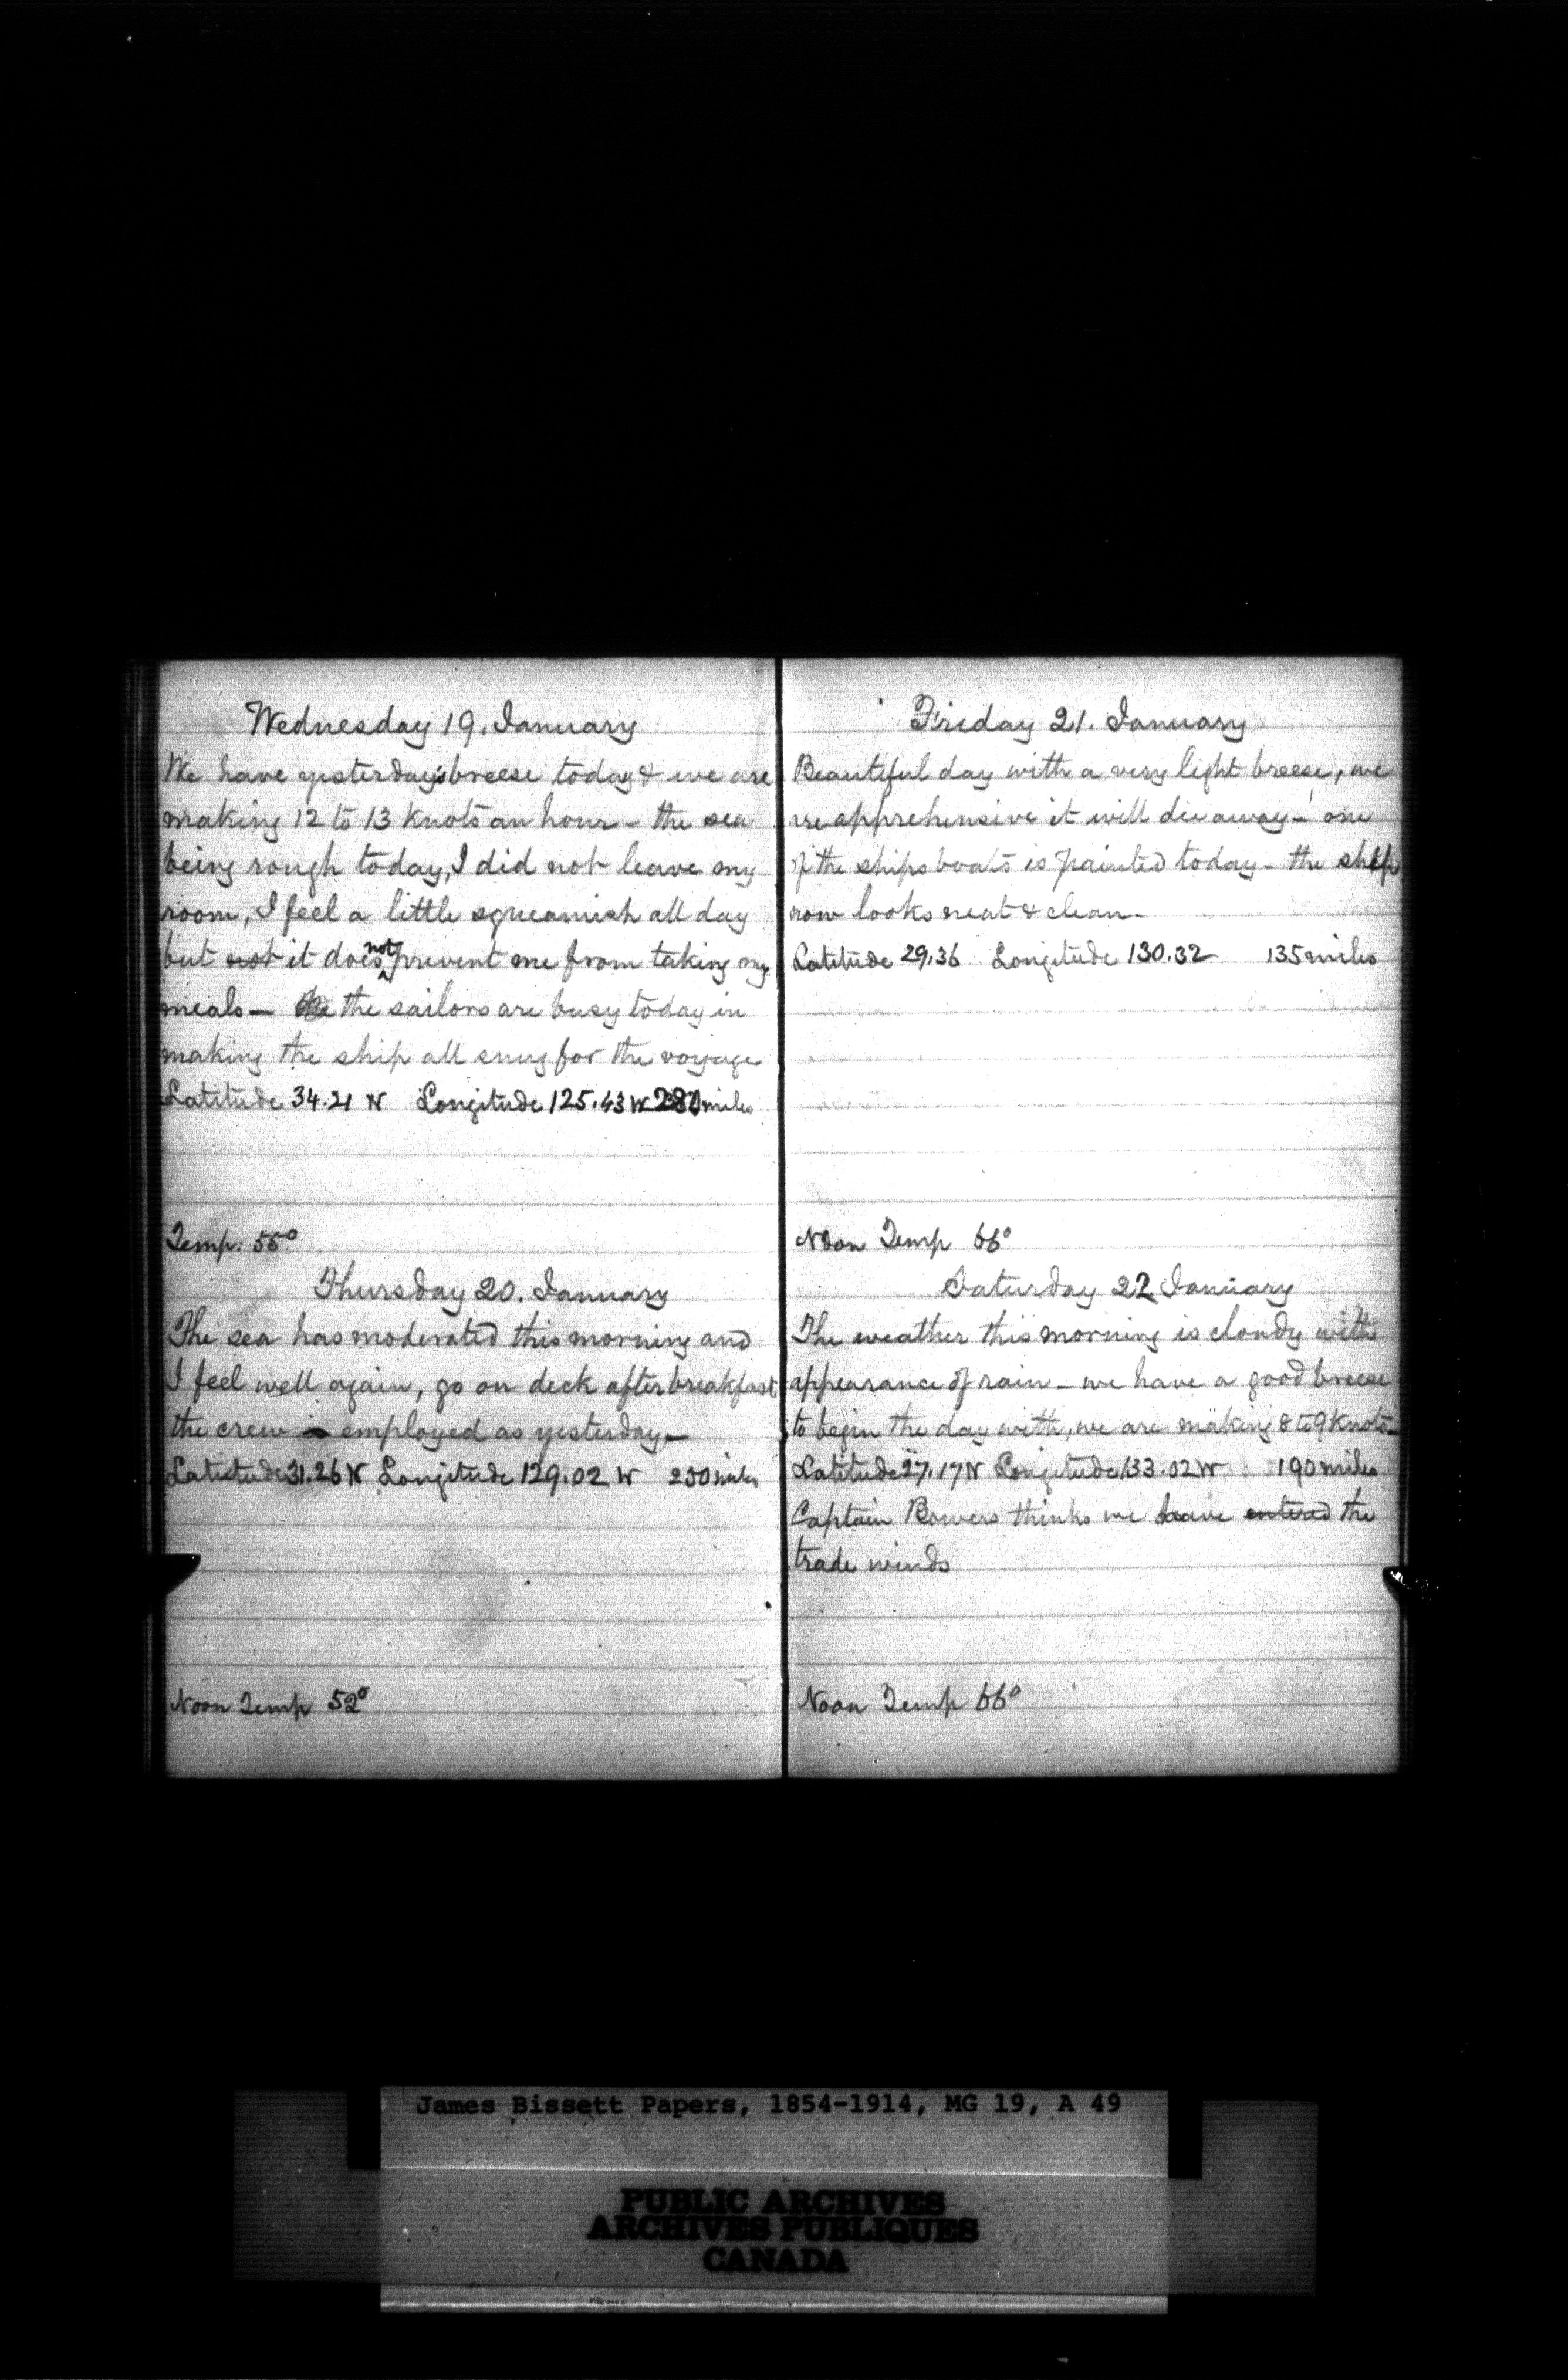 Wednesday 19. January
We have yesterday's breese today & we are
making 12 to 13 Knots an hour - the sea
being rough today, I did not leave my
room, I feel a little squeamish all day
but not it does not prevent me from taking my
meals - the sailors are busy today in
making the ship all snug for the voyage
Latitude 34.21 N Longitude 125.43 W 280 miles
Temp: 55°
Thursday 20. January
The sea has moderated this morning and
I feel well again, go on deck after breakfast
the crew is employed as yesterday -
Latitude 31.26 N Longitude 129.02 W 250 miles
Noon Temp 52°
Friday 21. January
Beautiful day with a very light breese, we
are apprehensive it will die away - one
of the ships boats is painted today - the ship
now looks neat & clean -
Latitude 29.36 Longitude 130.32 135 miles
Noon Temp 66°
Saturday 22 January
The weather this morning is cloudy with
appearance of rain - we have a good breese
to begin the day with, we are making 8 to 9 Knots -
Latitude 27.17 N Longitude 133.02 W 190 miles
Captain Bowers thinks we have entered the
trade winds
Noon Temp 66°
James Bissett Papers, 1854-1914, MG 19, A 49
PUBLIC ARCHIVES
ARCHIVES PUBLIQUES
CANADA